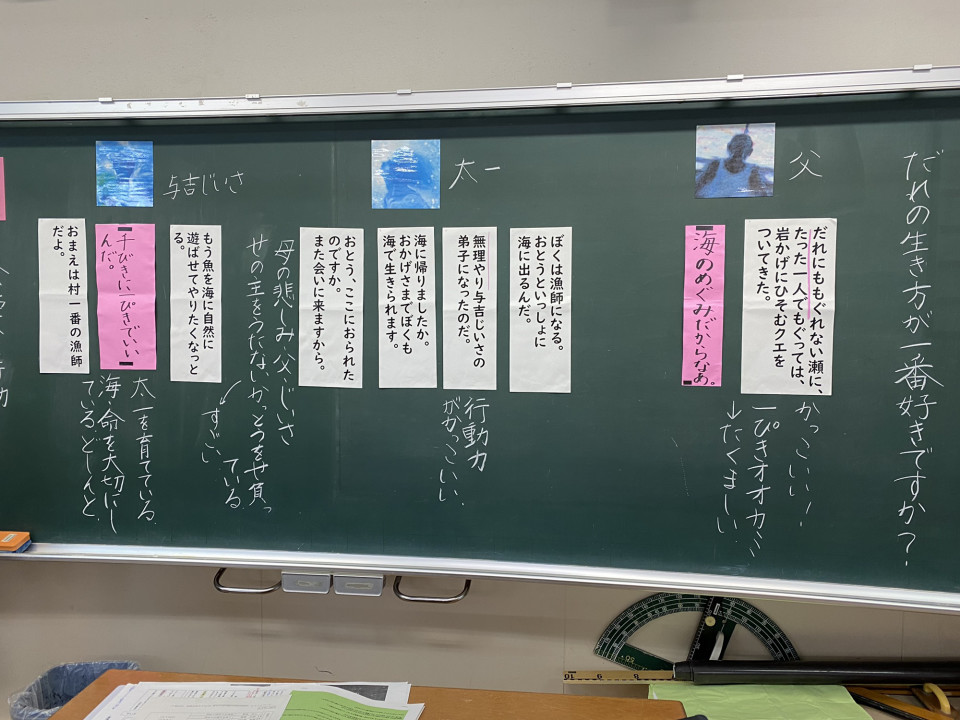 だれの生き方が一番好きですか？
父
だれにももぐれない瀬に、
たった一人でもぐっては、
岩かげにひそむクエを
ついてきた。
かっこいい！
一ぴきオオカミ
→たくましい
海のめぐみだからなあ。
太一
ぼくは漁師になる。
おとうといっしょに
海に出るんだ。
無理やり与吉じいさの
弟子になったのだ。
行動力
がかっこいい
海に帰りましたか。
おかげさまでぼくも
海で生きられます。
おとう、ここにおられた
のですか。
また会いに来ますから。
母の悲しみ・父・じいさ
せの主をうたないかっとうをせ負っ
ている
すごい
与吉じいさ
もう魚を海に自然に
遊ばせてやりたくなっと
る。
千びきに一ぴきでいい
んだ。
太一を育てている
海の命を大切にし
ている。どしんと
おまえは村一番の漁師
だよ。